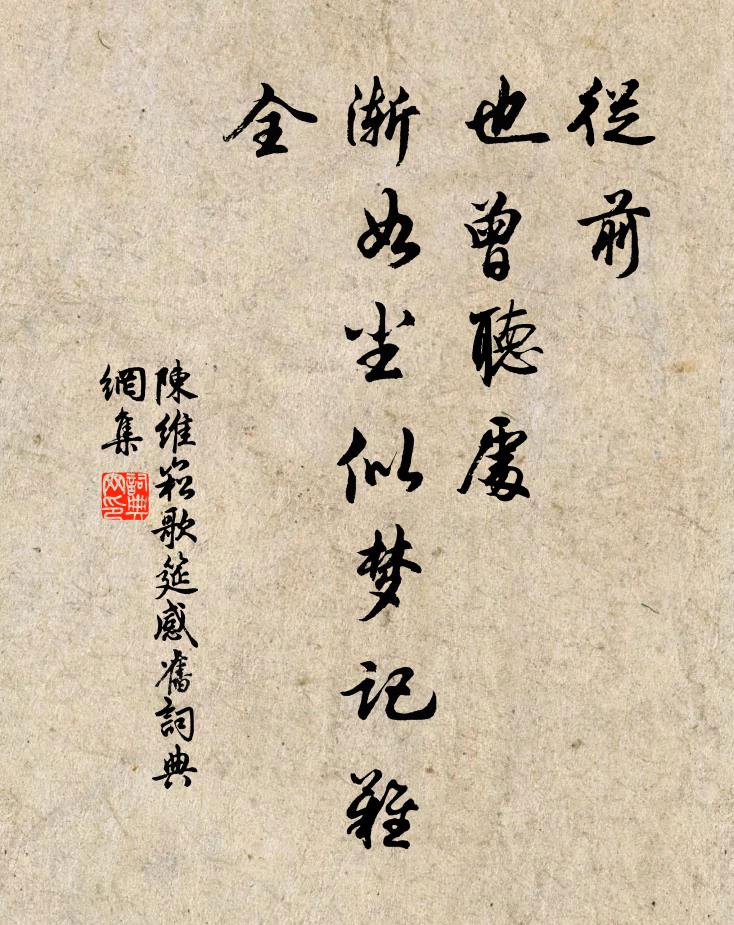 從前
也曾聽處
渐如尘似梦記難
全
陳維崧歌筵感舊詞典
網集
詞典
网印